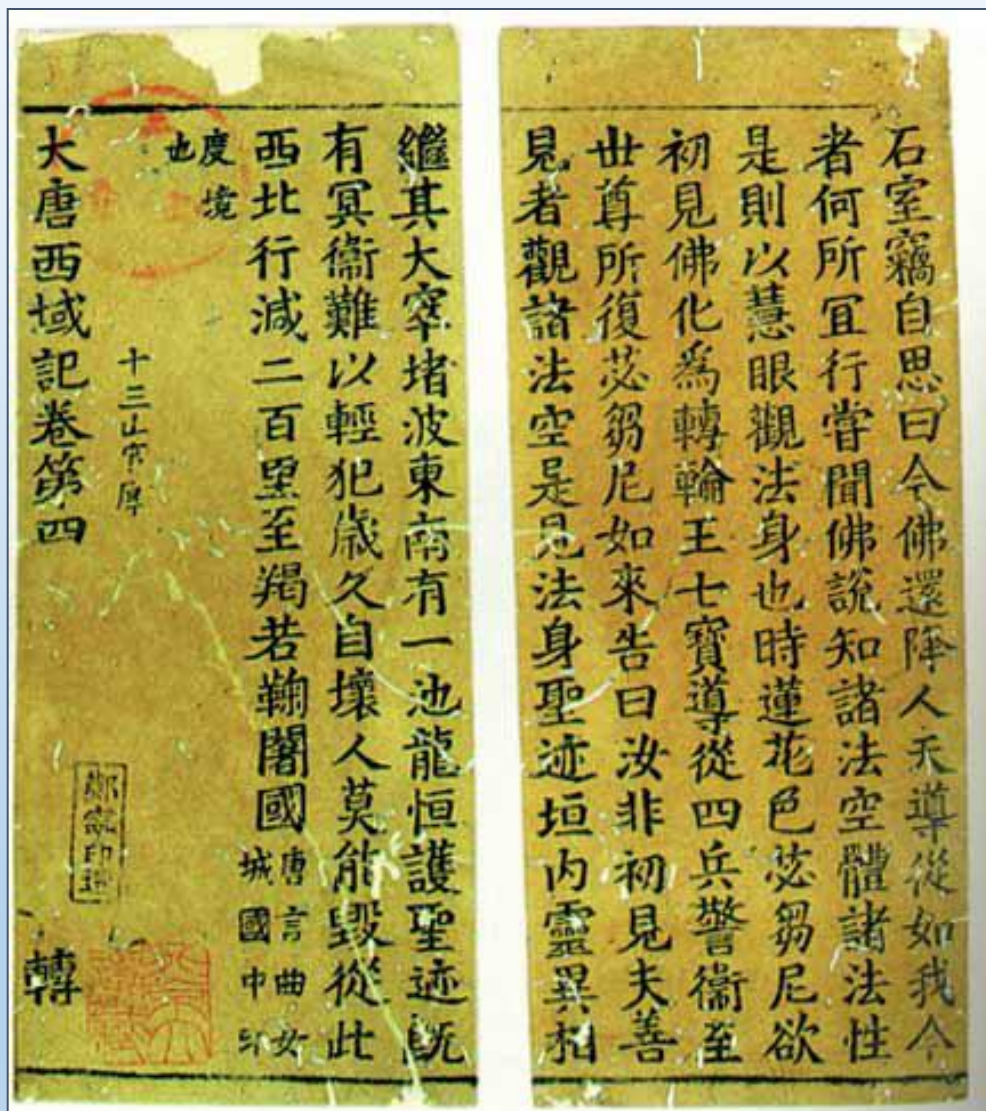 石室竊自思曰今佛還降人天導從如我今
者何所冝行甞聞佛說知諸法空體諸法性
是則以慧眼觀法身也時蓮花色苾芻尼欲
初見佛化為轉輪王七寶導從四兵警衞至
世尊所復苾芻尼如來告曰汝非初見夫善
見者觀諸法空是見法身聖迹垣内靈異相
繼其大窣堵波東南有一池龍恒護聖迹旣
有冥衞難以輕犯歲久自壞人莫能毀從此
西北行減二百里至羯若鞠闍國唐言曲女
城國中印
度境
也
十三
大唐西域記卷第四 轉